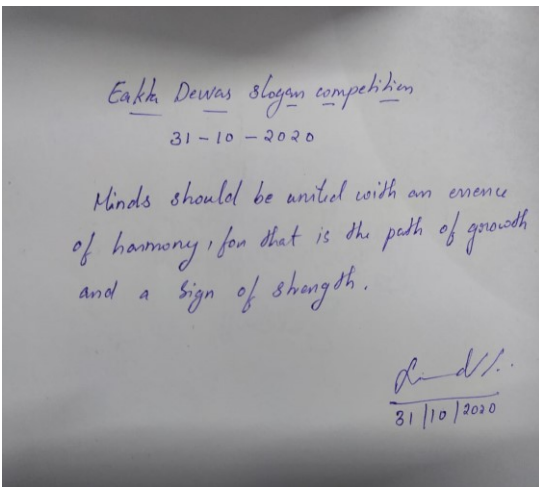 Eakta Dewas slogan competition
31-10-2020
Minds should be united with an essence
of harmony, for that is the path of growth
and a sign of strength.
31/10/2020